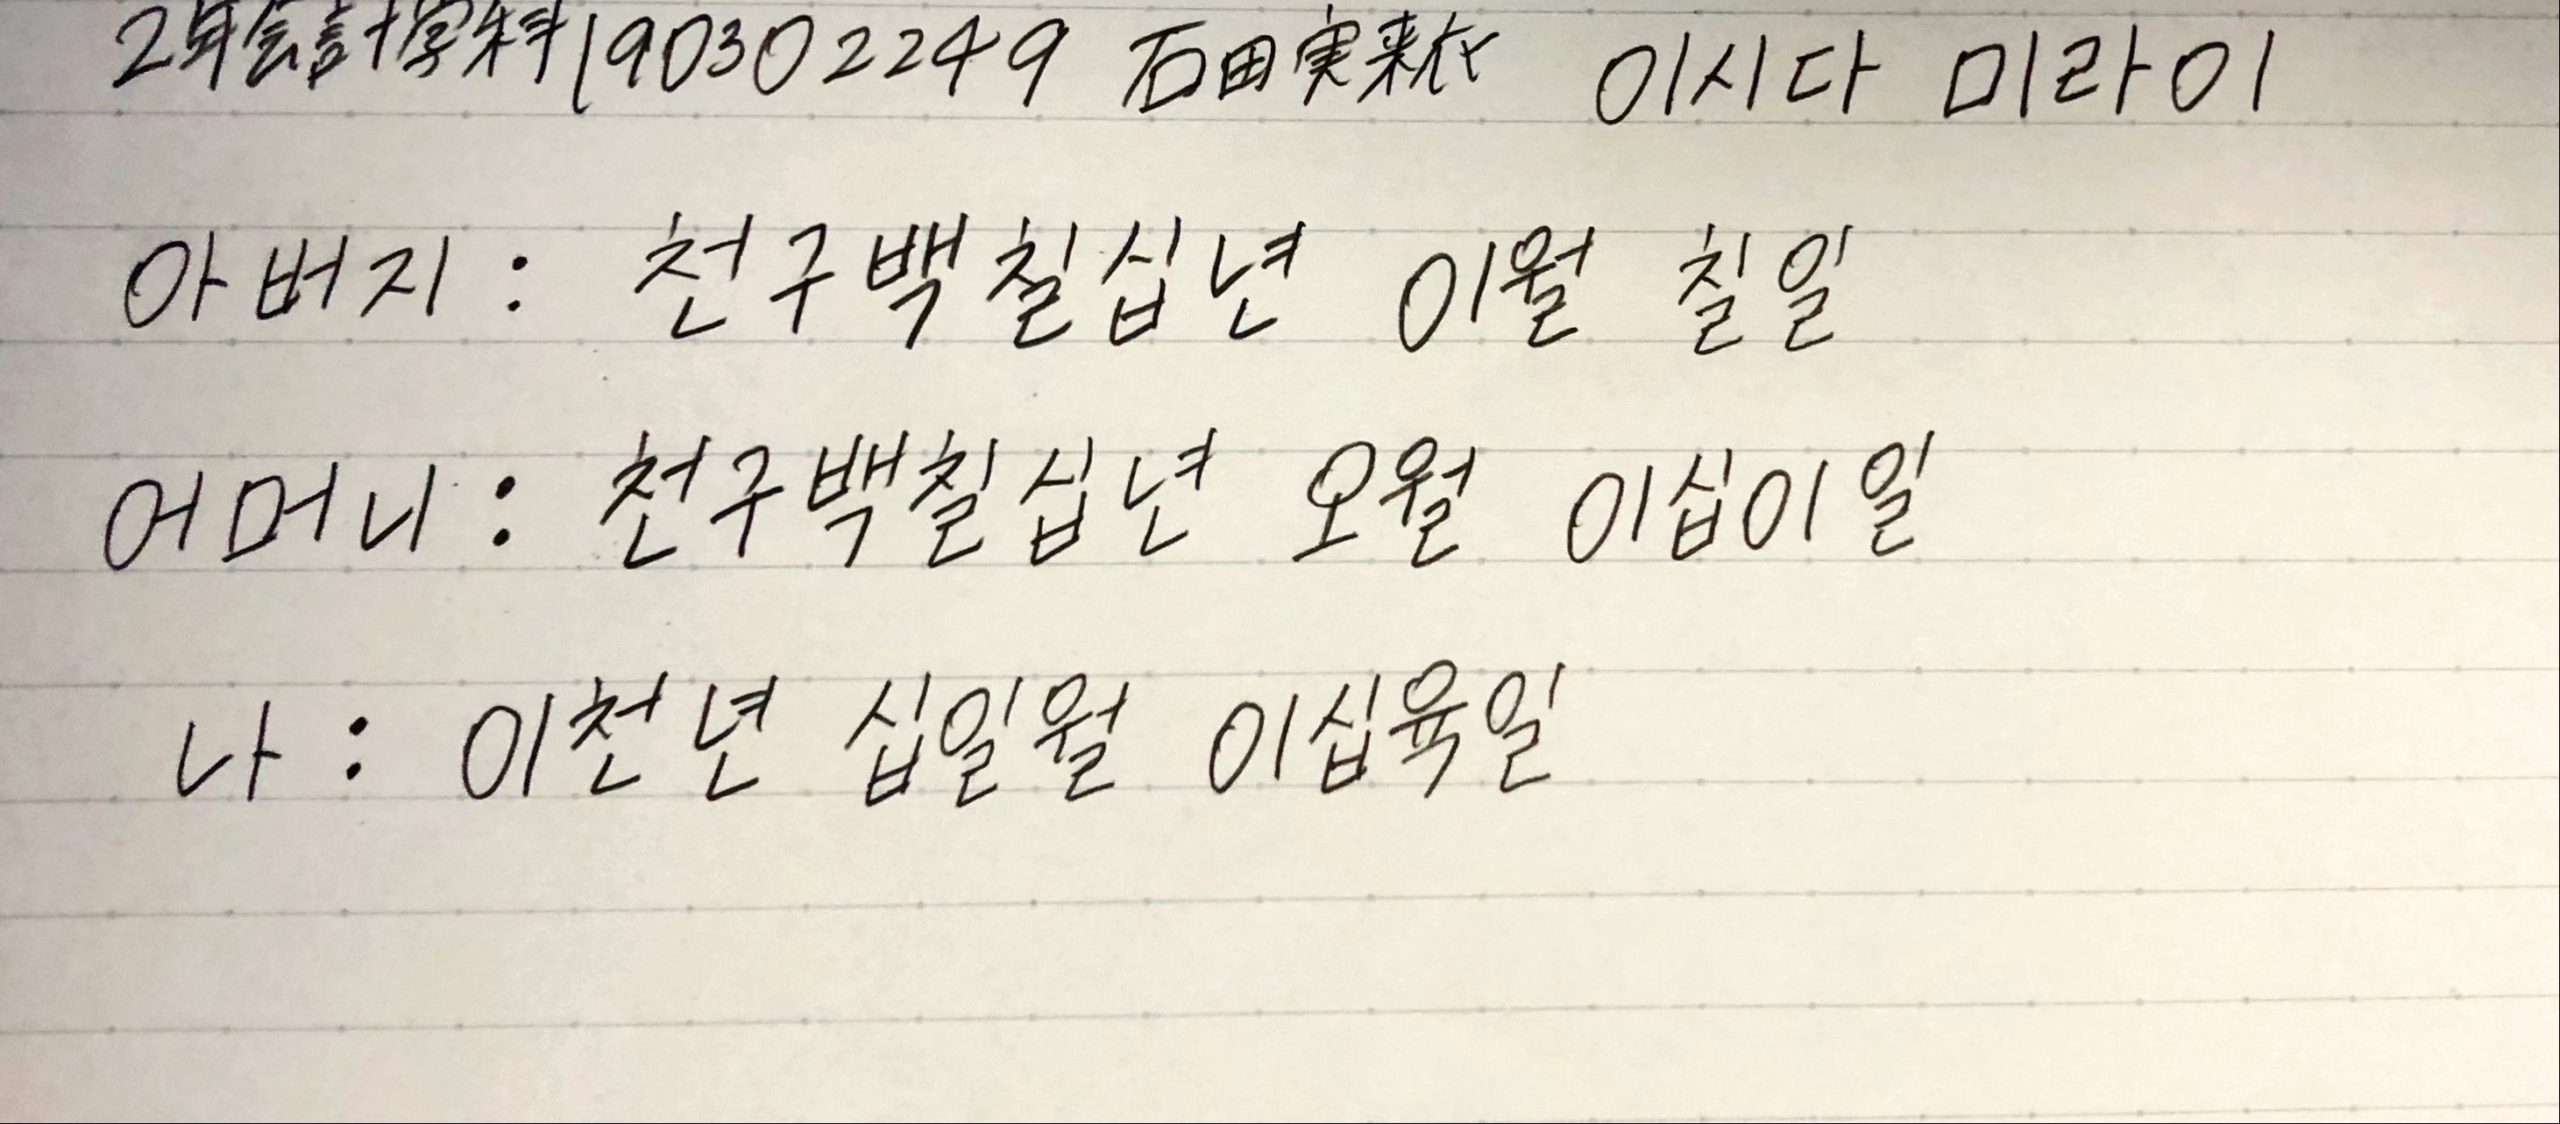 2年会計学科190302249 石田実来衣 이시다 미라이
아버지 : 천구백칠십년 이월 칠일
어머니 : 천구백칠십년 오월 이십이일
나 : 이천년 십일월 이십육일